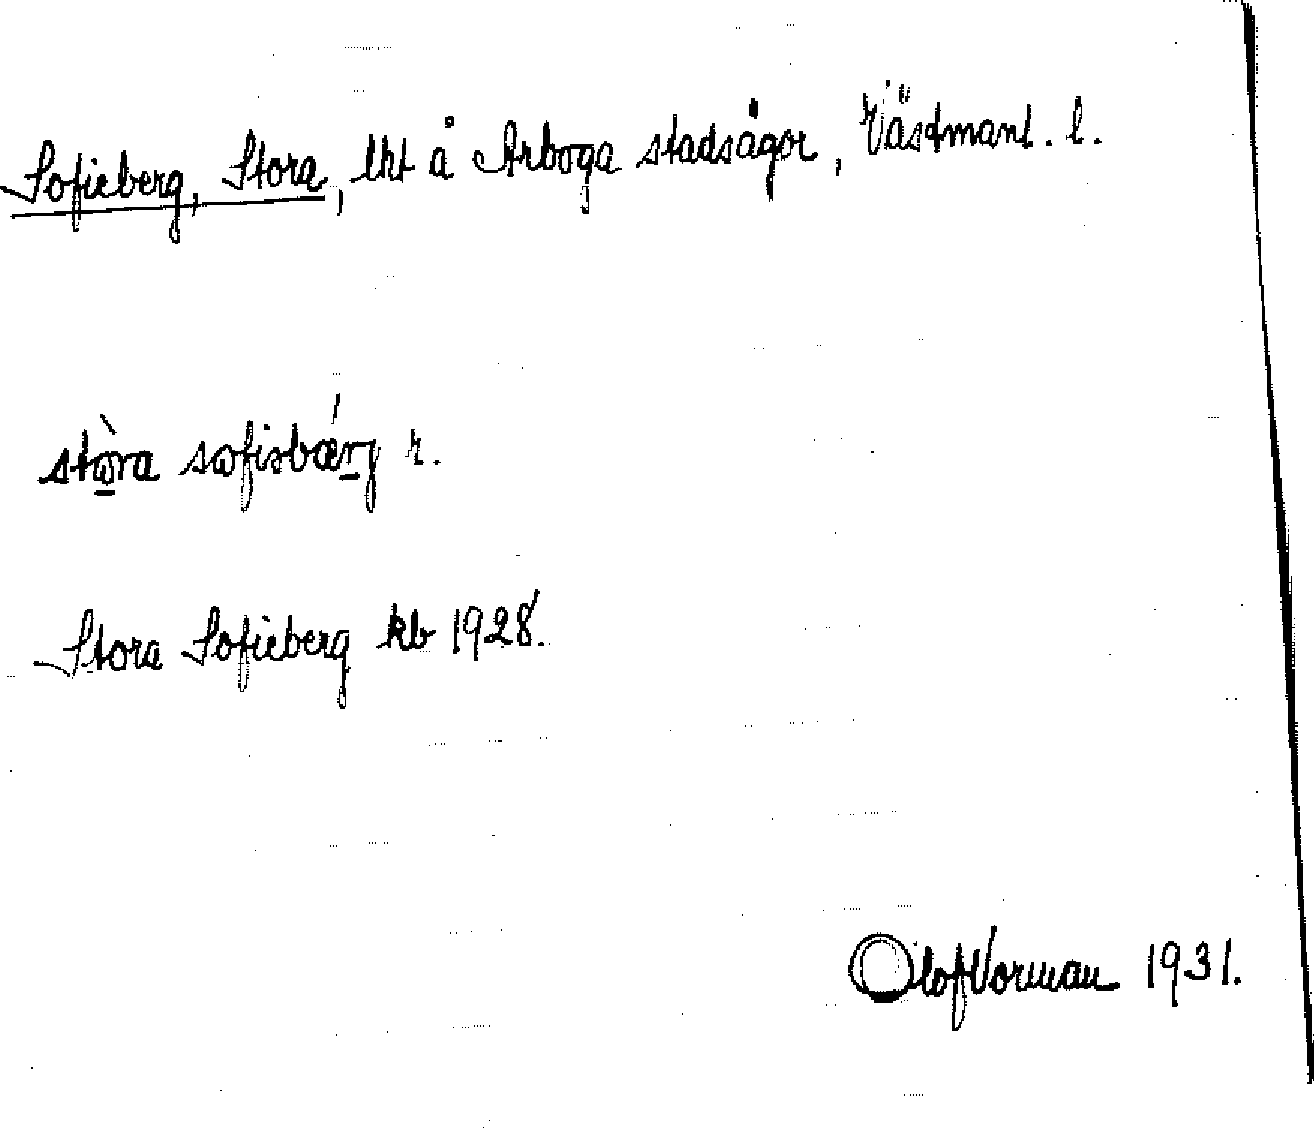 Sofieberg, Stora, lht å Arboga stadsägor, Västmanl. l.
stòra sofisbærg r.
Stora Sofieberg kb 1928.
Olof Vorman 1931.